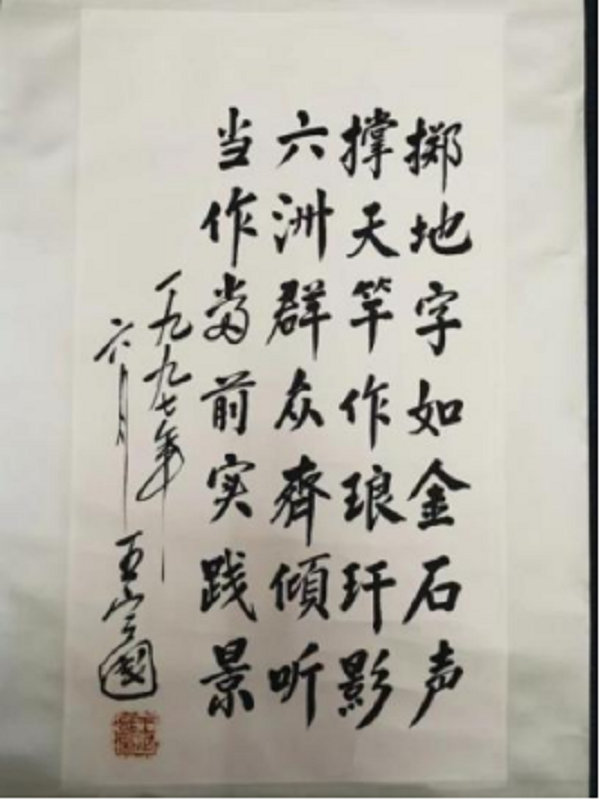 掷地字如金石声
撑天竿作琅玕影
六洲群众齊傾听
当作當前实践景
一九九七年
六月
王定國